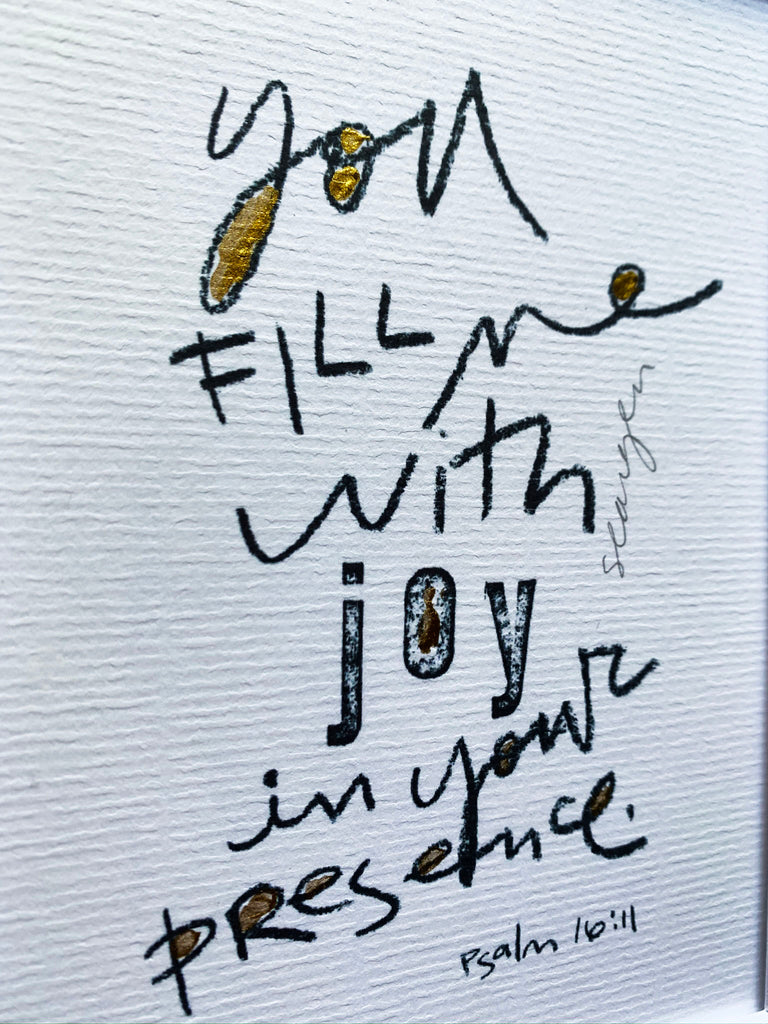 you
FILL me
with
joy
in your
presence.
Psalm 16:11